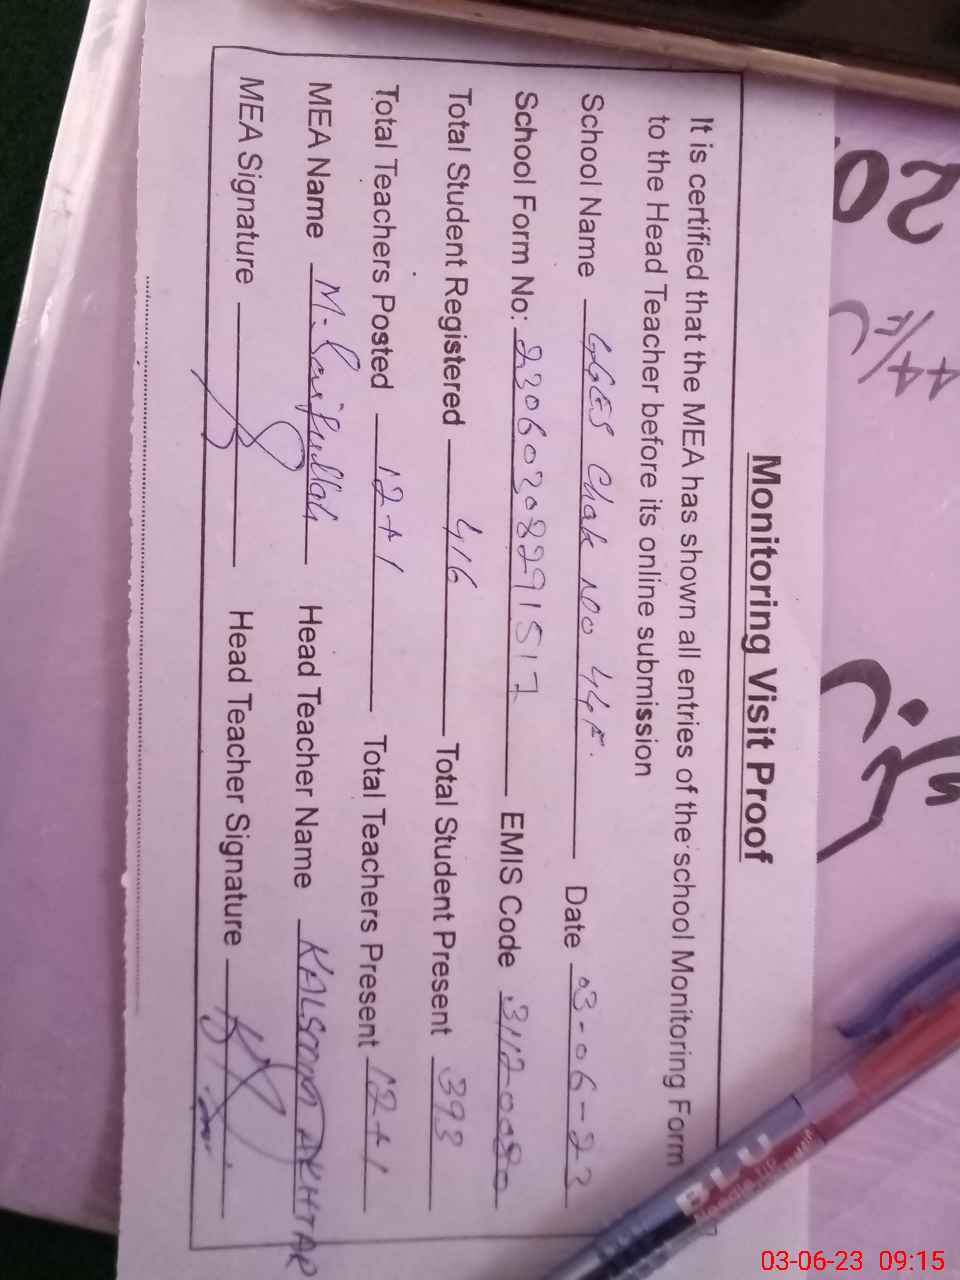 Monitoring Visit Proof
It is certified that the MEA has shown all entries of the school Monitoring Form
to the Head Teacher before its online submission
School Name GGES Chak No 44F. Date 03-06-23
School Form No: 23060308291517 EMIS Code 31120080
Total Student Registered 416 Total Student Present 393
Total Teachers Posted 12+1 Total Teachers Present 12+1
MEA Name M. Saifullah Head Teacher Name KALSOOM AKHTAR
MEA Signature Head Teacher Signature
BLU
03-06-23 09:15